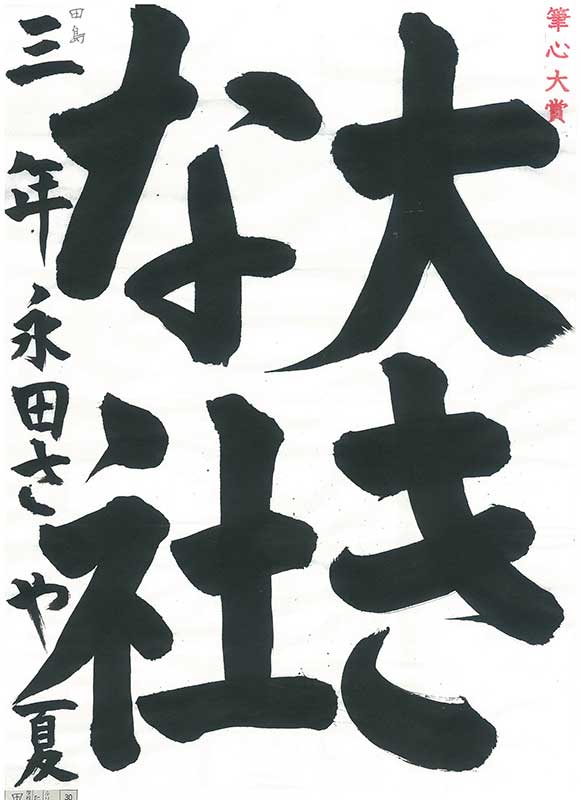 筆心大賞
大き
な社
田島
三年永田さや夏
30